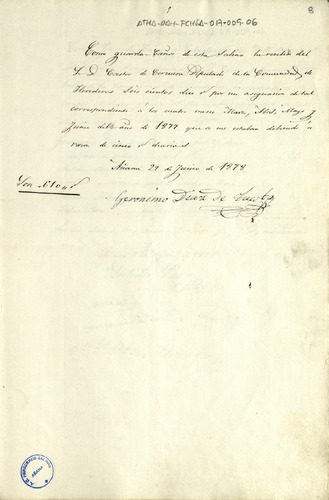 8
ATHA-DAH-FCHSA-019-009-06
Como guarda-Caños de esta Salina he recibido del
S. D. Castor de Corcuera Diputado de la Comunidad de
Herederos Seis cientos diez rs por mi asignacion de tal
correspondiente á los cuatro meses Marzo, Abril, Mayo y
Junio del año de 1877 que se me estaban debiendo á
razon de cinco rs diarios
Añana 29 de Junio de 1878
Son 610 rs
Geronimo Diaz de